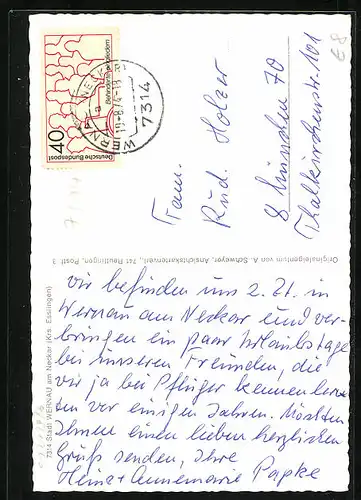 €8
WERNAU (NECKAR)
19.-8.74-18
7314
Behinderte eingliedern
Deutsche Bundespost
40
Fam.
Rud. Holzer
8 München 70
Thalkirchnerstr. 101
Originaleigentum von A. Schweyer, Ansichtskartenverl., 741 Reutlingen, Postf.
7314 Stadt WERNAU am Neckar (Krs. Esslingen)
wir befinden uns z. Zt. in
Wernau am Neckar und ver-
bringen ein paar Urlaubstage
bei unseren Freunden, die
wir ja bei Pflüger kennenlern-
ten vor einigen Jahren. Möchten
Ihnen einen lieben herzlichen
Gruß senden, Ihre
Heinz + Annemarie Papke